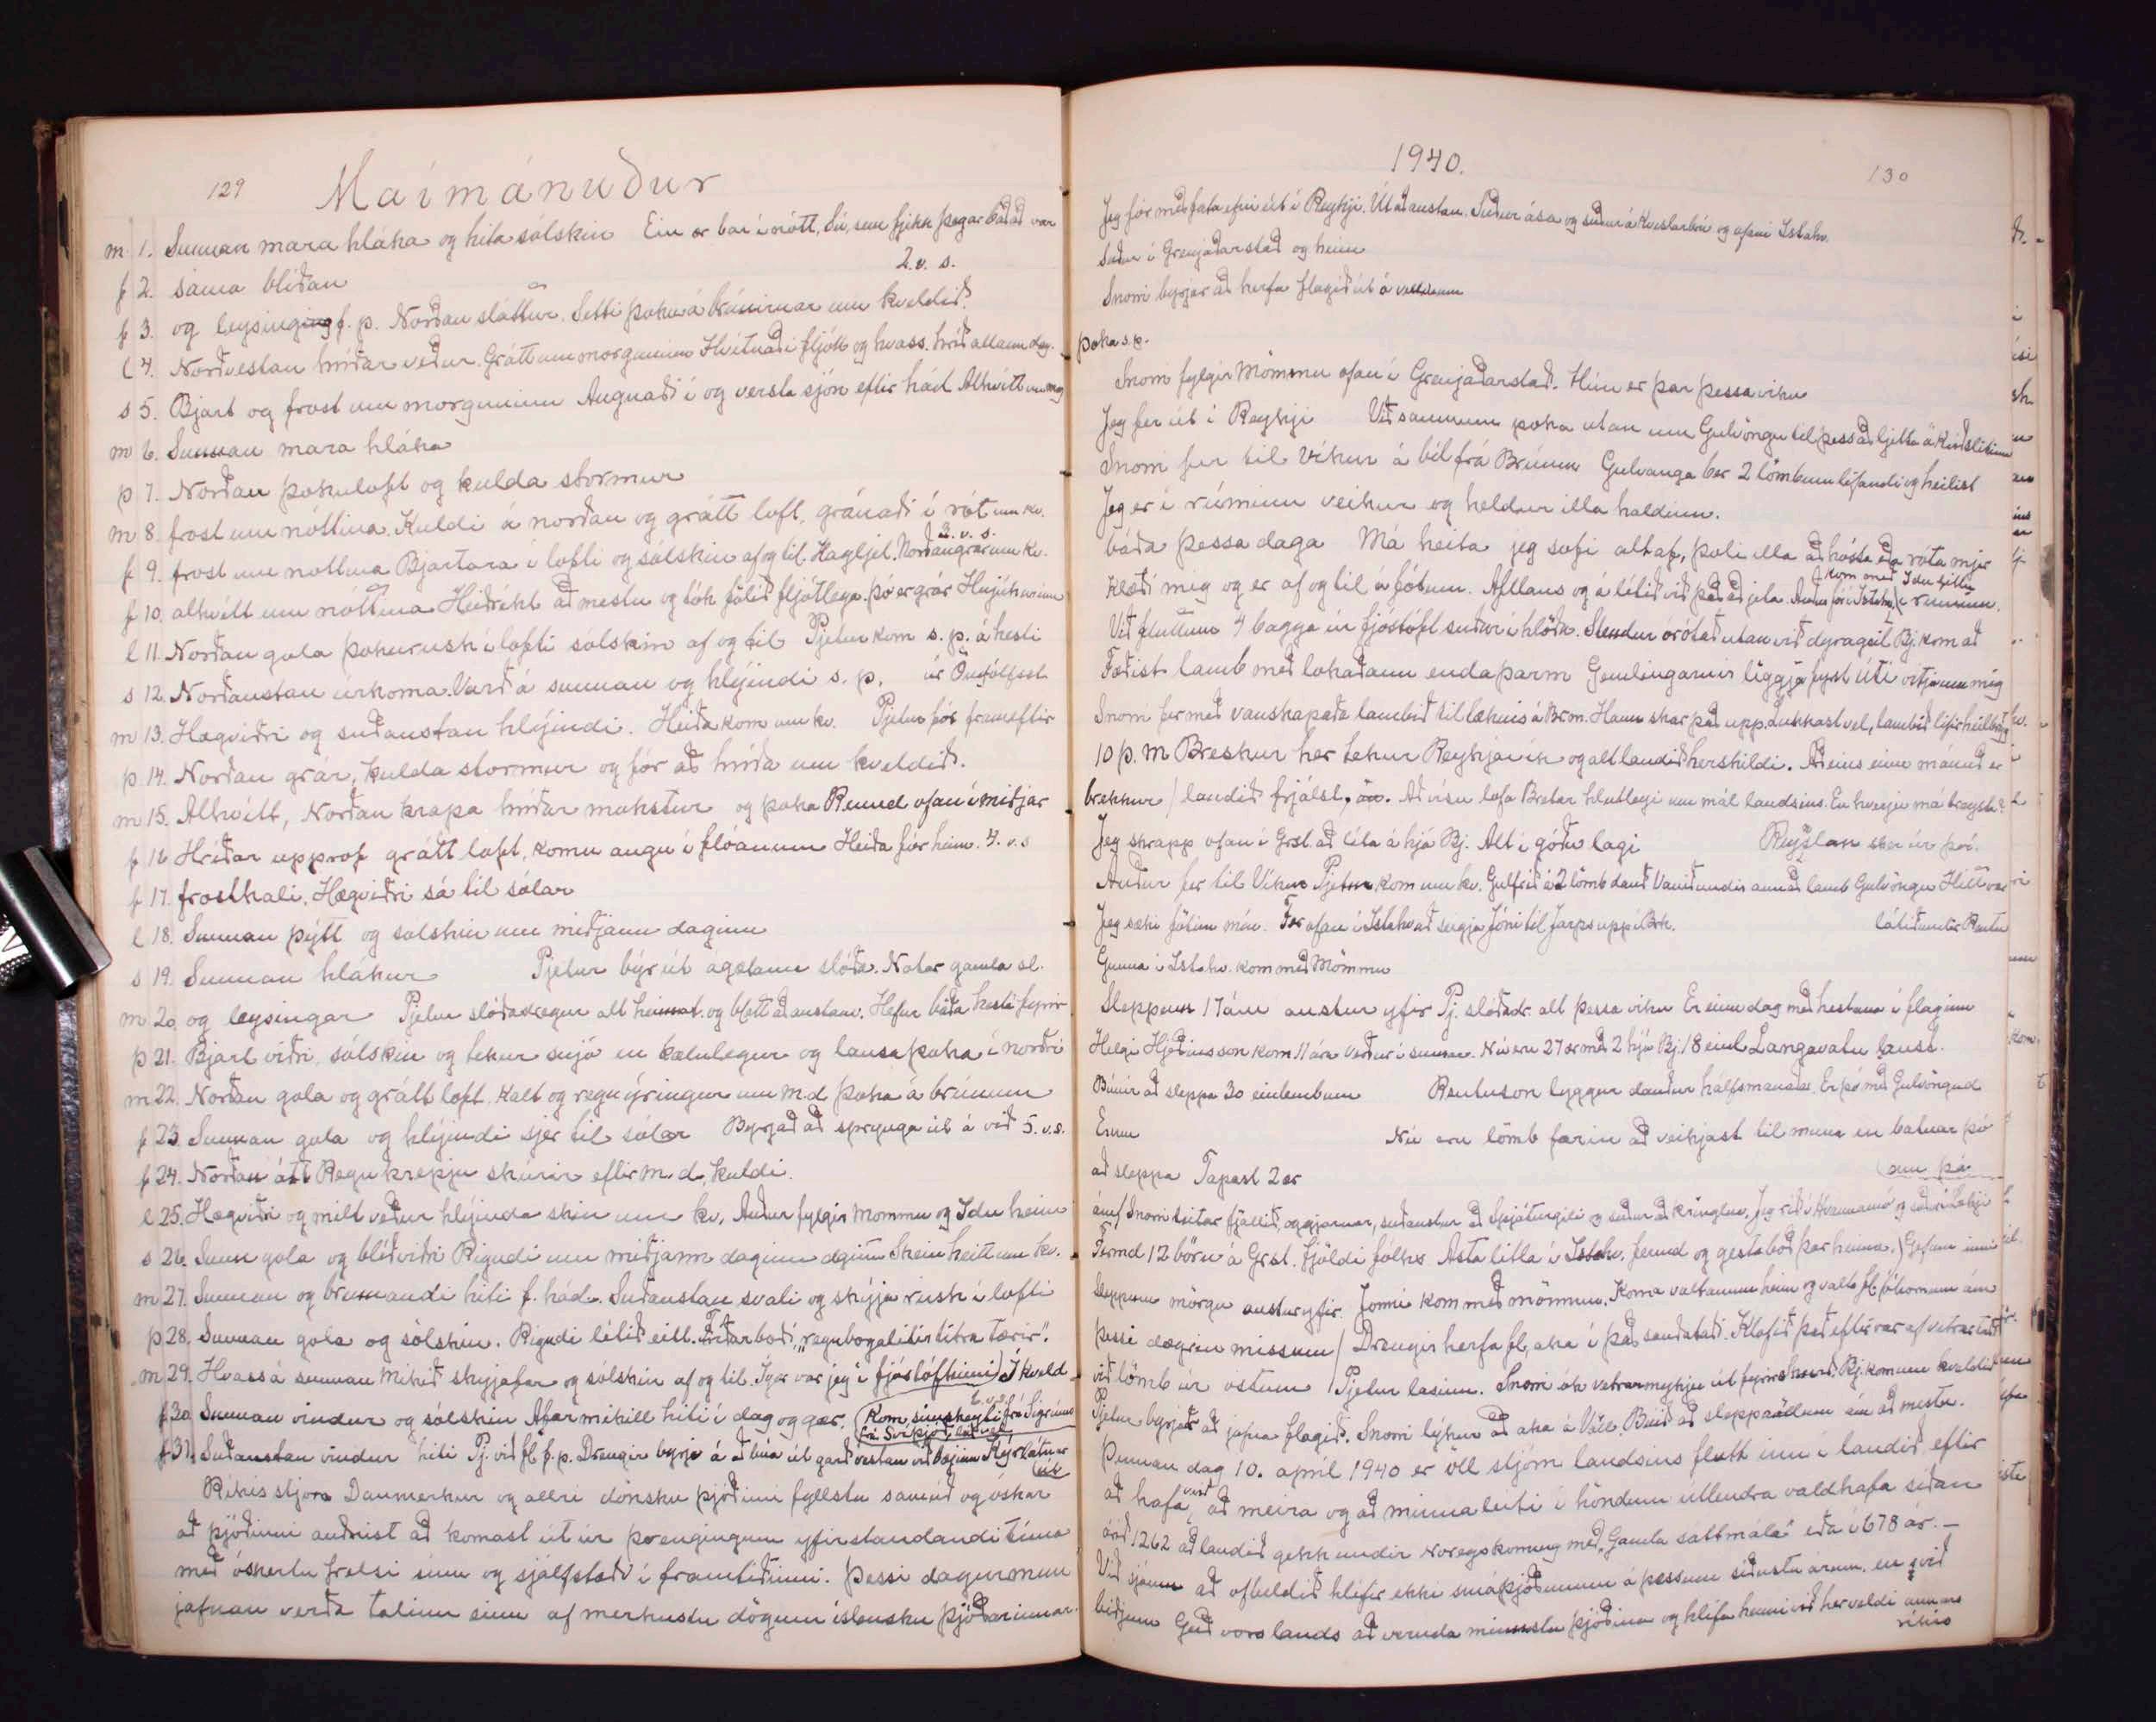 129 Maímánuður
m 1. Sunnan mara hláka og hita sólskin Ein ær bar í nótt, Sú, sem fjekk þegar baðað var
f 2. sama blíðan 2. v. s.
f 3. og leysing f. p. Norðan sláttur. Setti þoku á brúnirnar um kveldið.
l 4. Norðvestan hríðar veður. Grátt um morguninn Hvítnaði fljótt og hvass. hríð allann dag.
s 5. Bjart og frost um morguninn Augnaði í og versta sjón eftir hád Alhvítt um
m 6. Sunnan mara hláka
þ 7. Norðan þokuloft og kulda stormur
m 8. frost um nóttina. Kuldi á norðan og grátt loft, gránaði í rót um kv.
f 9. frost um nóttina Bjartara í lofti og sólskin af og til. Hagljel. Norðangrár um kv. 3. v. s.
f 10. alhvítt um nóttina Heiðríkt að mestu og tók fölið fljótlega. þó er grár
l 11. Norðan gola þokurusk í lofti sólskin af og til Pjetur kom s. p. á hesti
s 12. Norðaustan úrkoma. Varð á sunnan og hlýindi s. p. úr
m 13. Hægviðri og suðaustan hlýindi. Heiða kom um kv. Pjetur fór frameftir
þ. 14. Norðan grár, kulda stormur og fór að hríða um kveldið.
m 15. Alhvítt, Norðan krapa hríðar mokstur og þoka Rennd ofan í miðjar
f 16 Hríðar upprof grátt loft, komu augu í flóanum Heiða fór heim. 4. v. s
f 17. frostkali, Hægviðri sá til sólar
l 18. Sunnan þýtt og sólskin um miðjann daginn
s 19. Sunnan hlákur Pjetur býr út ágætann slóða. Notar gamla sl.
m 20 og leysingar Pjetur slóðadregur alt heimat. og blett að austan. Hefur báða hesta fyrir
þ 21. Bjart viðri, sólskin og tekur snjó en kælulegur og lausa þoka í norðri
m 22. Norðan gola og grátt loft, Kalt og regn ýringur um m.d þoka á brúnum
f 23 Sunnan gola og hlýindi sjer til sólar Byrjað að sprynga út á við 5. v. s.
f 24. Norðan átt Regn krepju skúrir eftir m. d. kuldi.
l 25. Hægviðri og milt veður hlýinda skin um kv, Auður fylgir Mömmu og Idu heim
s 26. Sunn gola og blíðviðri Rigndi um miðjann daginn Skein heitt um kv.
m 27. Sunnan og brennandi hiti f. hád. Suðaustan svali og skýja rusk í lofti
þ 28. Sunnan gola og sólskin. Rigndi lítið eitt. Friðarboði, "regnbogalitir titra tærir".
m 29. Hvass á sunnan Mikið skýjafar og sólskin af og til. Í gær var jeg í fjóslóftinu) Í kveld
f 30 Sunnan vindur og sólskin Afar mikill hiti í dag og gær. Kom símskeyti frá Sigrúnu 6. v. s.
frá Svíþjóð, leið vel
f 31. Suðaustan vindur hiti Pj. við fl f. p. Drengir byrja á að búa út garð vestan við bæjinn Kýr látnar
út
Ríkisstjóra Danmerkur og allri dönsku þjóðinni fyllstu samúð og óskar
að þjóðinni auðnist að komast út úr þrengingum yfirstandandi tíma
með óskertu frelsi sínu og sjálfstæði í framtíðinni. Þessi dagur mun
jafnan verða talinn einn af merkustu dögum íslensku þjóðarinnar.
1940. 130
Jeg fór með fata efni út í Reykji. Út að austan. Suður ása og suður á Hvítarbrú og ofaní Ístahv.
Suður í Grenjaðarstað og heim
Snorri byrjar að herfa flagið út á vellinum
þoka s. p.
Snorri fylgir Mömmu ofan í Grenjaðarstað. Hún er þar þessa viku
Jeg fer út í Reykji Við saumum poka utan um Gulvöngu til þess að ljetta á kviðslitinu
Snorri fer til Víkur á bíl frá Brúum Gulvanga ber 2 lömbum lifandi og heilist
Jeg er í rúminu veikur og heldur illa haldinn.
báða þessa daga Má heita jeg sofi altaf, þoli illa að hósta eða róta mjer
Klæði mig og er af og til á fótum. Afllaus og á lítið við það að jeta. kom með Idu litlu
Við fluttum 4 bagga úr fjóslóft suður í hlöðu. Stendur órótað utan við dyragsil Bj. kom að
Fæðist lamb með lokaðann endaþarm Gemlingarnir liggja fyst úti
Snorri fer með vanskapaða lambið til læknis á Brm. Hann skar það upp. Lukkast vel, lambið lifir heilbrigt
10 þ. m Breskur her tekur Reykjavík og alt landið herskildi. Aðeins einn mánuð er
brekkur / landið frjálst, Að vísu lofa Bretar hlutleysi um mál landsins. En hverju má treysta?
Jeg skrapp ofan í Grst. að líta á hjá Bj. Alt í góðu lagi Reynslan sker úr því.
Auður fer til Víkur Pjetur kom um kv. Gulfríð á 2 lömb dauð Vanið undir annað lamb Gulvöngu Hitt var
Jeg sæki fötin mín. Fer ofan í Ístahv að segja Jóni til Jarps uppí Brk. látið undir Rentu
Gunna í Ístahv. kom með Mömmu
Sleppum 17 ám austur yfir Pj. slóðadr. alt þessa viku Er einn dag með hestana í flaginu
Helgi Hjeðinsson kom 11 ára verður í sumar. Nú eru 27 ær með 2 hjá Bj. 18 einl. Langavatn laust.
Búnir að sleppa 30 einlembum Rentuson lyggur dauður hálfsmánaðar. Er þó með Gulvöngud
Erum Nú eru lömb farin að veikjast til muna en batnar þó
að sleppa Tapast 2 ær
ám/ Snorri leitar fjallið, og gjárnar, suðaustur að Spjóturgili og suður að Kringlu.
Fermd 12 börn á Grst. fjöldi fólks Asta litla í Ístahv. fermd og gestaboð þar heima. Gefum inni
Sleppum mörgu austur yfir. Jonni kom með mönnum.
þessi dægrin missum/ Drengir herfa fl, aka í það sauðataði. Klofið það eftir var af vetrartaði
við lömb úr ostum / Pjetur lasinn. Snorri ók vetrarmykju út Bj. kom um kveldið
Pjetur byrjar að jafna flagið. Snorri lýkur að aka á Völl. Búið að sleppa öllum ám að mestu.
Þennan dag 10. apríl 1940 er öll stjórn landsins flutt inn í landið eftir
að hafa verið að meira og að minna leiti í höndum útlendra valdhafa síðan
árið 1262 að landið gekk undir Noregskonung með "Gamla sáttmála" eða í 678 ár. –
Við sjáum að ofbeldið hlífir ekki smáþjóðunum á þessum síðustu árum, en við
biðjum Guð vors lands að vernda minnstu þjóðina og hlífa henni við herveldi annars
ríkis